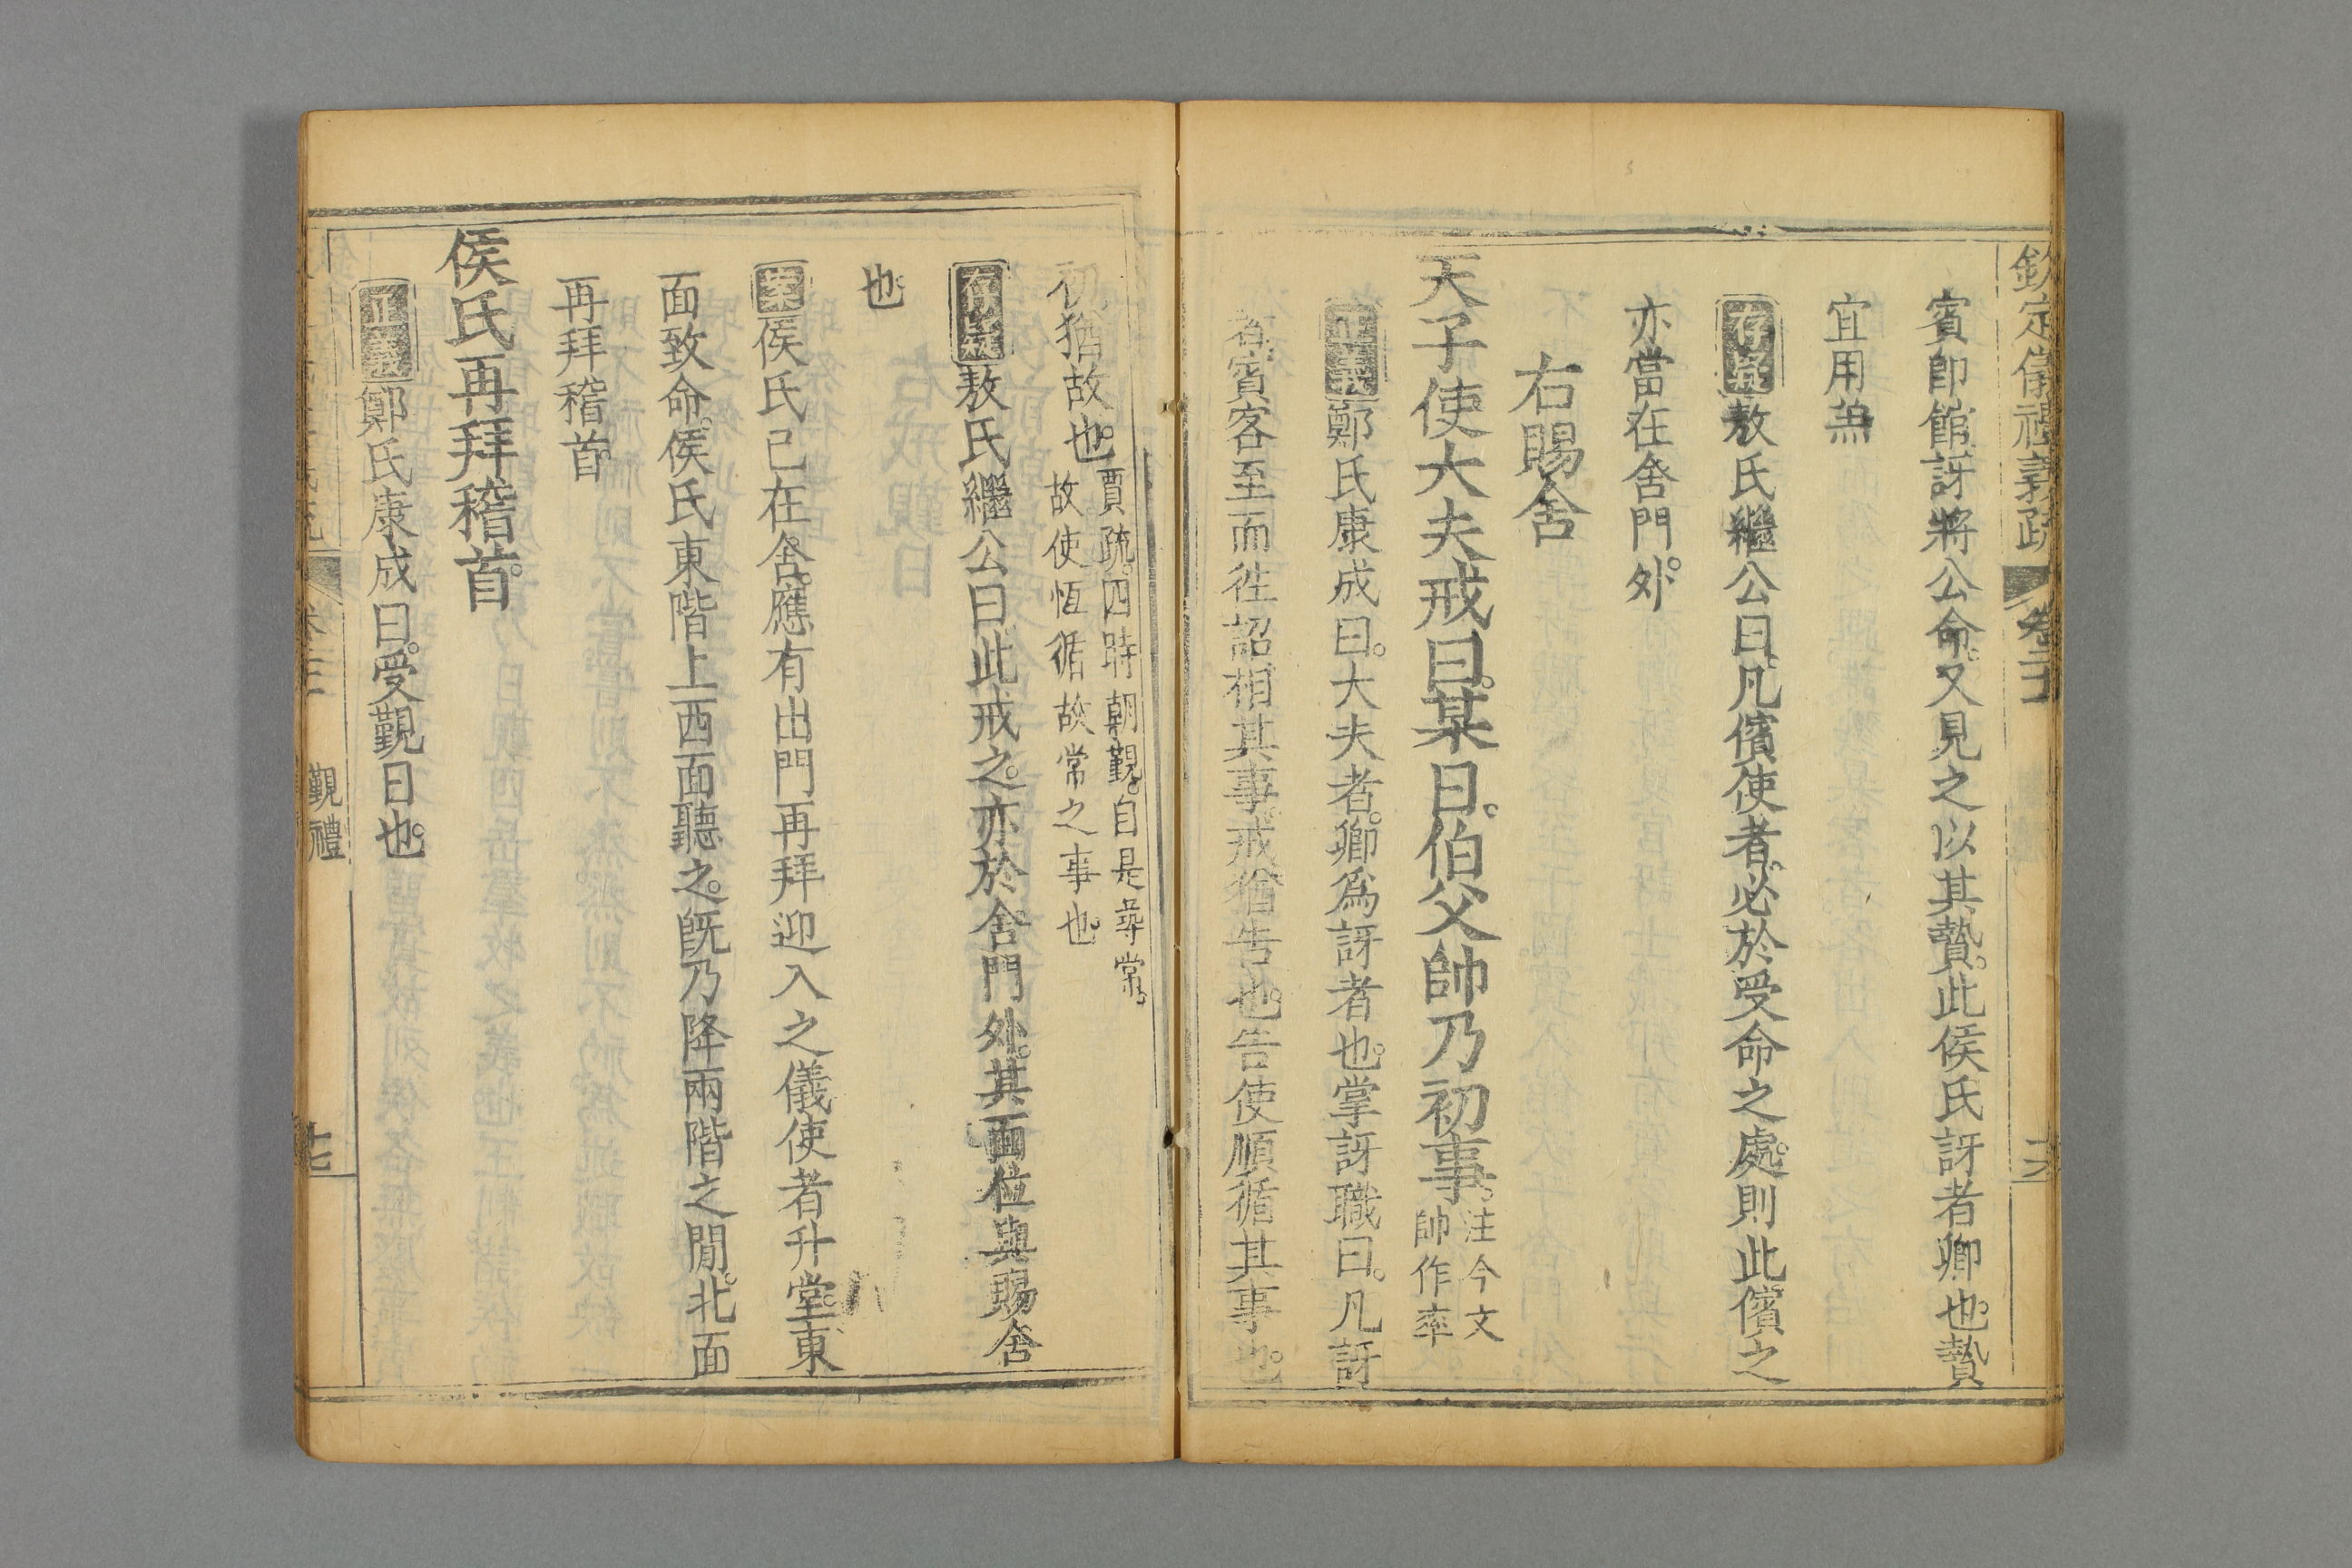 欽定儀禮義疏 卷二十 十六
賓卽館訝將公命又見之以其贄此侯氏訝者卿也贄
宜用羔
存疑敖氏繼公曰凡儐使者必於受命之處則此儐之
亦當在舍門外
右賜舍
天子使大夫戒曰某日伯父帥乃初事注今文
帥作率
正義鄭氏康成曰大夫者卿爲訝者也掌訝職曰凡訝
者賓客至而徃詔相其事戒猶告也告使順循其事也
初猶故也賈疏四時朝覲自是尋常
故使恆循故常之事也
存疑敖氏繼公曰此戒之亦於舍門外其面位與賜舍
也
案侯氏已在舍應有出門再拜迎入之儀使者升堂東
面致命侯氏東階上西面聽之旣乃降兩階之閒北面
再拜稽首
侯氏再拜稽首
正義鄭氏康成曰受覲日也
覲禮 十七